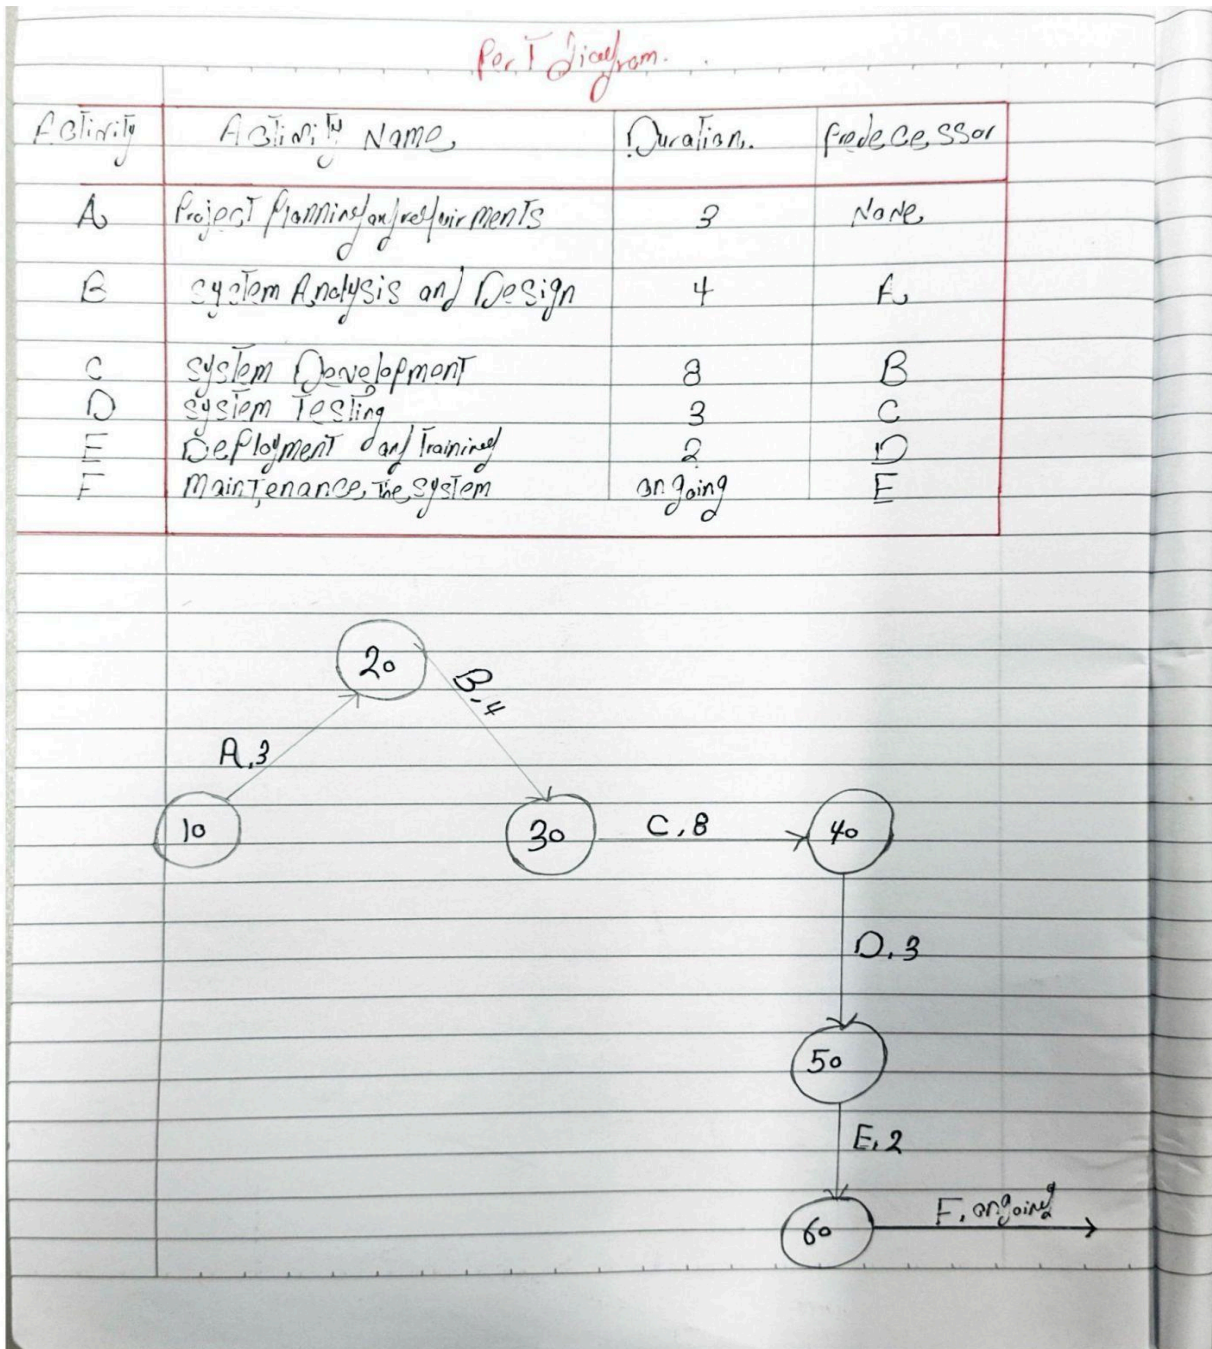 PerT diagram.
Activity Activity Name Duration. Predecessor
A Project Planning and requirments 3 None
B System Analysis and Design 4 A
C System Development 8 B
D System Testing 3 C
E Deployment and Training 2 D
F Maintenance the system ongoing E
20
B,4
A,3
10
30
C,8
40
D,3
50
E,2
60
F, ongoing